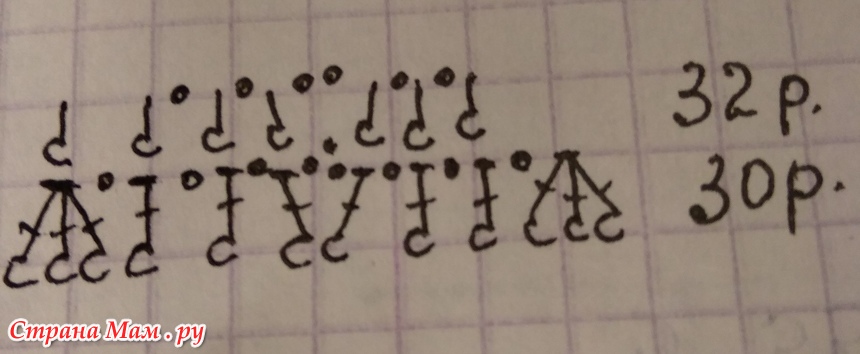 32 р.
30 р.
Страна Мам . ру